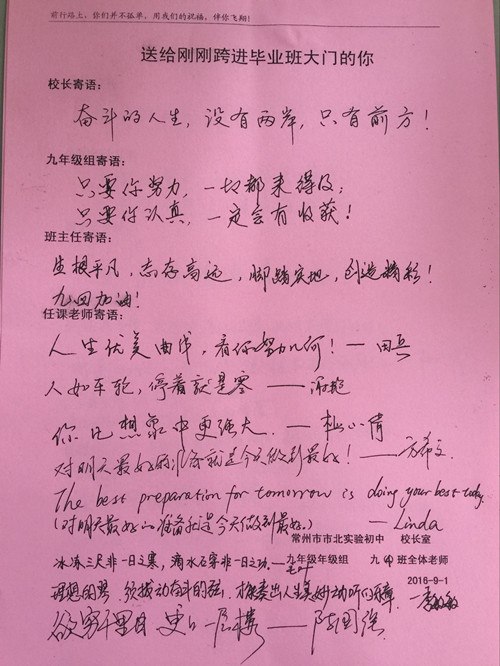 前行路上，你们并不孤单，用我们的祝福，伴你飞翔！
送给刚刚跨进毕业班大门的你
校长寄语：
奋斗的人生，没有两岸，只有前方！
九年级组寄语：
只要你努力，一切都来得及；
只要你认真，一定会有收获！
班主任寄语：
生根平凡，志存高远，脚踏实地，创造精彩！
九四加油！
任课老师寄语：
人生优美曲线，看你努力几何！——田兵
人如车轮，停着就是零——
你比想象中更强大．——杜小倩
对明天最好的准备就是今天做到最好！——方希文
The best preparation for tomorrow is doing your best today.
(对明天最好的准备就是今天做到最好。) —Linda
常州市市北实验初中 校长室
冰冻三尺非一日之寒，滴水石穿非一日之功．——
九年级年级组 九(4)班全体老师
理想的琴，须拨动奋斗的弦，才能奏出人生美妙动听的乐章
2016-9-1
欲穷千里目 更上一层楼——陈国强